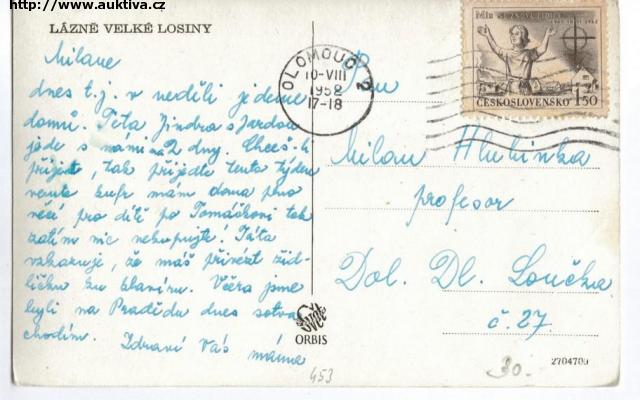 http://www.auktiva.cz
LÁZNĚ VELKÉ LOSINY
Milane
dnes t.j. v neděli jedeme
domů. Teta Jindra s Jardou
jede s námi na 2 dny. Chceš-li
přijet, tak přijeďte tento týden
kufr mám doma plno
věcí pro dítě po Tomáškovi tak
zatím nic nekupujte! Táta
vzkazuje, že máš přivézt žid-
ličku ku klavíru. Včera jsme
byli na Pradědu dnes sotva
chodím. Zdraví Vás máma
OLOMOUC 2
10-VIII
1952
17-18
ČESKOSLOVENSKO 1,50
Pan
Milan Hlubinka
profesor
Dol. Dl. Loučka
č. 27
Svět
ORBIS
453
30.-